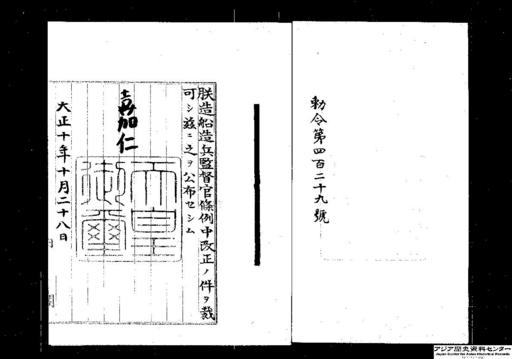 勅令第四百二十九號
朕造船造兵監督官條例中改正ノ件ヲ裁
可シ茲ニ之ヲ公布セシム
嘉仁
天皇
御璽
大正十年十月二十八日
アジア歴史資料センター
Japan Center for Asian Historical Records